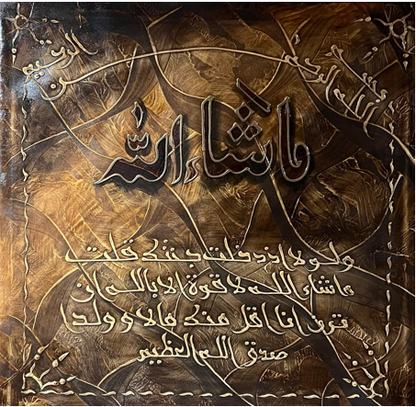 بسم الله الرحمن الرحيم
ما شاء الله
ولولا اذ دخلت جنتك قلت
ما شاء الله لا قوة الا بالله ان
ترن انا اقل منك مالا وولدا
صدق الله العظيم